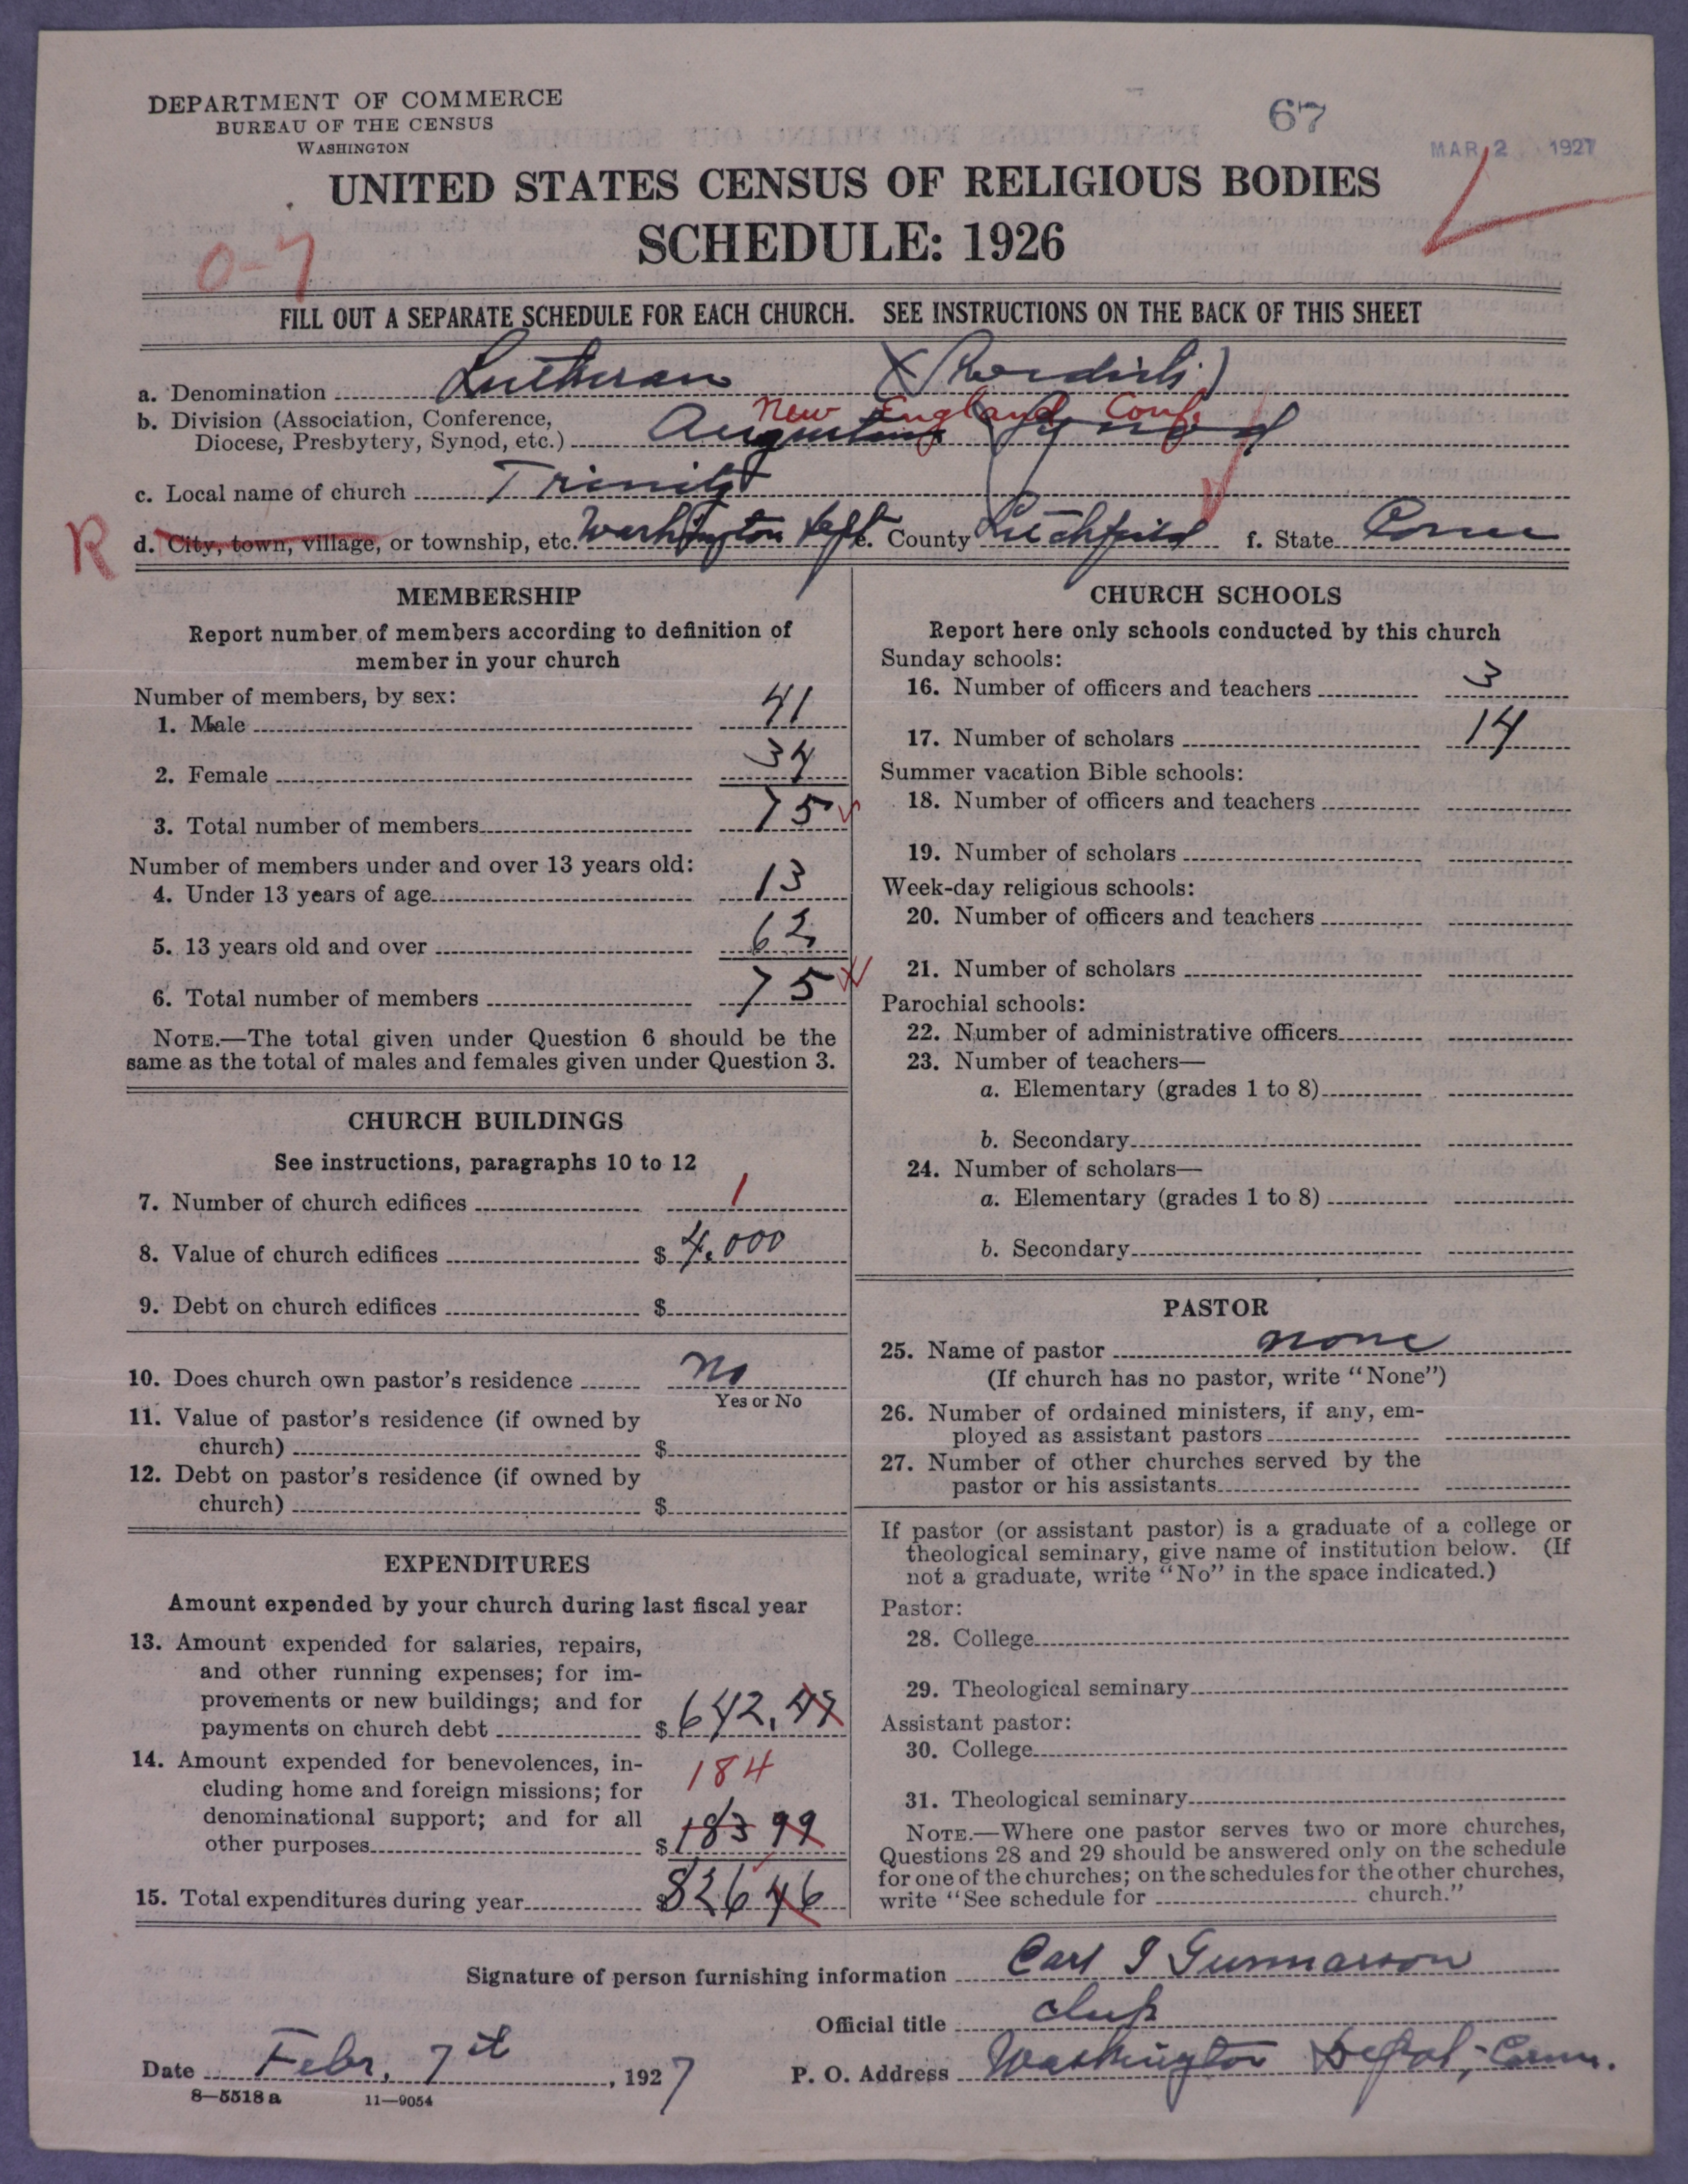 DEPARTMENT OF COMMERCE
BUREAU OF THE CENSUS
WASHINGTON
67
MAR 2 1927
UNITED STATES CENSUS OF RELIGIOUS BODIES
SCHEDULE: 1926
0-7
FILL OUT A SEPARATE SCHEDULE FOR EACH CHURCH. SEE INSTRUCTIONS ON THE BACK OF THIS SHEET
a. Denomination Lutheran (Swedish)
New England Conf.
b. Division (Association, Conference,
Diocese, Presbytery, Synod, etc.) Augustana Synod
c. Local name of church Trinity
R
d. City, town, village, or township, etc. Washington Dept. e. County Litchfield f. State Conn
MEMBERSHIP
Report number of members according to definition of
member in your church
Number of members, by sex:
1. Male 41
2. Female 34
3. Total number of members 75
Number of members under and over 13 years old:
4. Under 13 years of age 13
5. 13 years old and over 62
6. Total number of members 75
NOTE.—The total given under Question 6 should be the
same as the total of males and females given under Question 3.
CHURCH BUILDINGS
See instructions, paragraphs 10 to 12
7. Number of church edifices 1
8. Value of church edifices $ 4.000
9. Debt on church edifices $
10. Does church own pastor's residence No
Yes or No
11. Value of pastor's residence (if owned by
church) $
12. Debt on pastor's residence (if owned by
church) $
EXPENDITURES
Amount expended by your church during last fiscal year
13. Amount expended for salaries, repairs,
and other running expenses; for im-
provements or new buildings; and for
payments on church debt $ 642.47
14. Amount expended for benevolences, in-
184
cluding home and foreign missions; for
denominational support; and for all
other purposes $ 183 99
15. Total expenditures during year $ 826 46
CHURCH SCHOOLS
Report here only schools conducted by this church
Sunday schools:
16. Number of officers and teachers 3
17. Number of scholars 14
Summer vacation Bible schools:
18. Number of officers and teachers
19. Number of scholars
Week-day religious schools:
20. Number of officers and teachers
21. Number of scholars
Parochial schools:
22. Number of administrative officers
23. Number of teachers—
a. Elementary (grades 1 to 8)
b. Secondary
24. Number of scholars—
a. Elementary (grades 1 to 8)
b. Secondary
PASTOR
25. Name of pastor none
(If church has no pastor, write "None")
26. Number of ordained ministers, if any, em-
ployed as assistant pastors
27. Number of other churches served by the
pastor or his assistants
If pastor (or assistant pastor) is a graduate of a college or
theological seminary, give name of institution below. (If
not a graduate, write "No" in the space indicated.)
Pastor:
28. College
29. Theological seminary
Assistant pastor:
30. College
31. Theological seminary
NOTE.—Where one pastor serves two or more churches,
Questions 28 and 29 should be answered only on the schedule
for one of the churches; on the schedules for the other churches,
write "See schedule for church."
Signature of person furnishing information Carl I Gunnarson
Official title
Date Febr. 7th, 1927
P. O. Address Washington Depot, Conn.
8—5518 a 11—9054